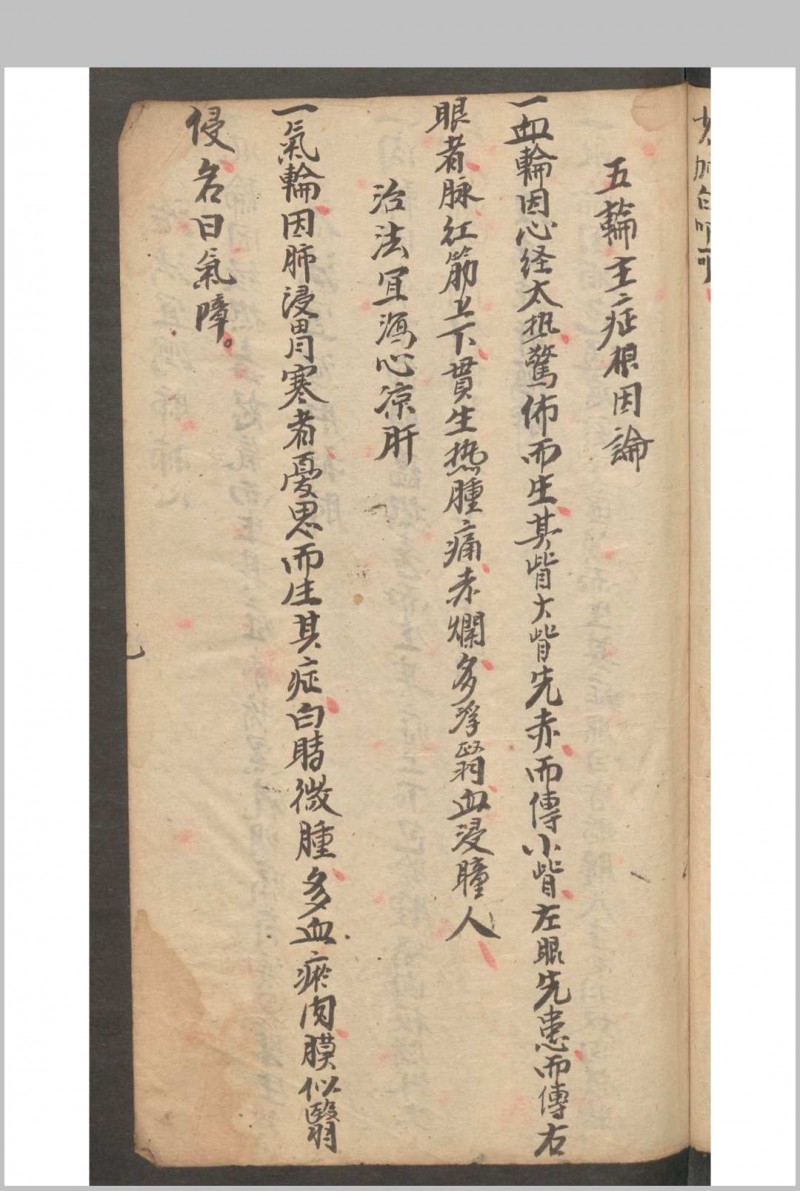 五輪主症根因論
一血輪因心経太热驚佈而生其眥大眥先赤而傳小眥左眼先患而傳右
眼者脉红筋上下貫生热腫痛赤爛多浮翳血浸瞳人
治法宜瀉心凉肝
一氣輪因肺浸胃寒者憂思而生其症白睛微腫多血瘀肉膜似翳
侵名曰氣障。